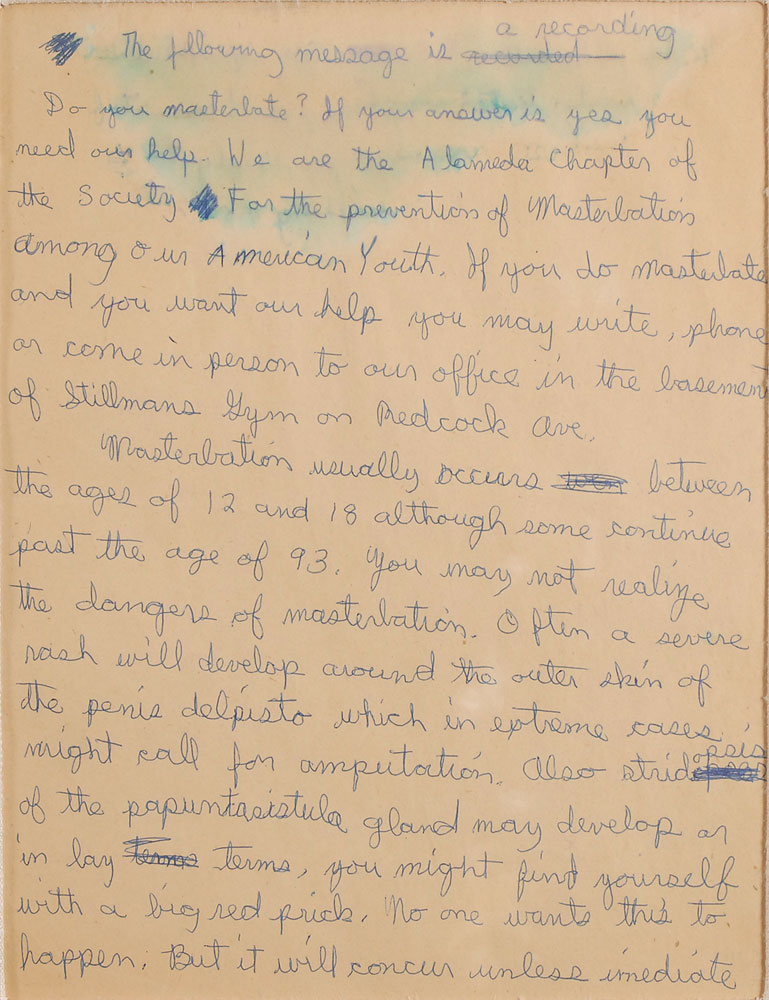 The following message is a recording
Do you masterbate? If your answer is yes you
need our help. We are the Alameda Chapter of
the Society For the prevention of Masterbation
among Our American Youth. If you do masterbate
and you want our help you may write, phone
or come in person to our office in the basement
of Stillmans Gym on Redcock Ave.
Masterbation usually occurs between
the ages of 12 and 18 although some continue
past the age of 93. You may not realize
the dangers of masterbation. Often a severe
rash will develop around the outer skin of
the penis delpisto which in extreme cases
might call for amputation. Also stridopsis
of the papuntasistula gland may develop or
in lay terms, you might find yourself
with a big red prick. No one wants this to
happen. But it will concur unless imediate